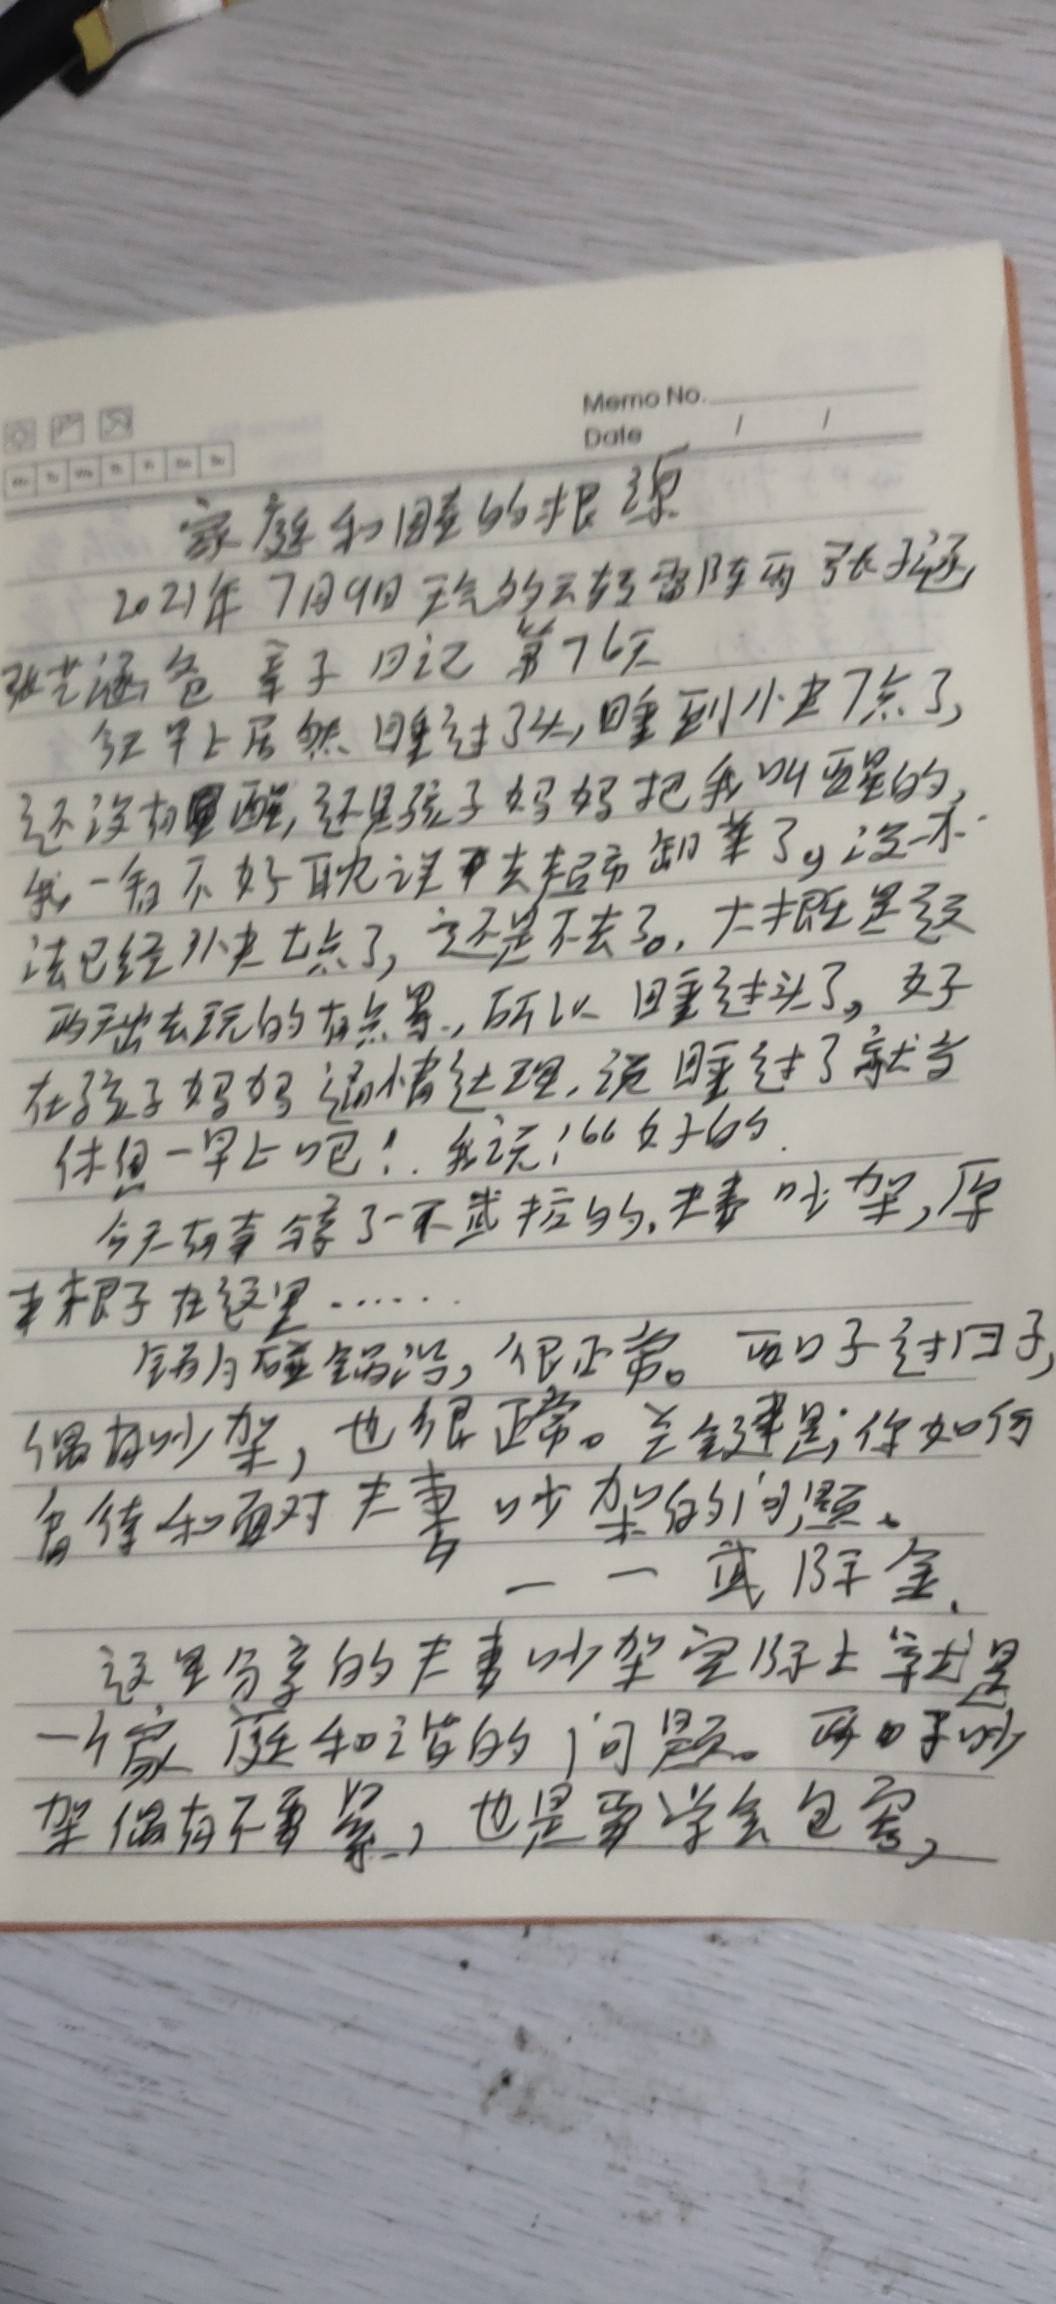 Memo No.
Date / /
家庭和睦的根源
2021年7月9日 天气多云转雷阵雨 张子涵
张艺涵爸 亲子日记 第76天
今天早上居然睡过了头,睡到小史7点了,
还没有醒,还是孩子妈妈把我叫醒的,
我一看不好耽误去超市卸菜了,没办
法已经小史七点了,还是不去了。大概是这
两天出去玩的有点累,所以睡过头了。好
在孩子妈妈通情达理,说睡过了就当
休息一早上吧!我说:“好的
今天有幸分享了一不武 的,夫妻吵架,原
来根子在这里……
锅沿,很正常。两口子过日子,
偶有吵架,也很正常。关键是,你如何
看待和面对夫妻吵架的问题。
——武际金
这里分享的夫妻吵架实际上就是
一个家庭和谐的问题。两口子吵
架偶有不要紧,也是要学会包容,